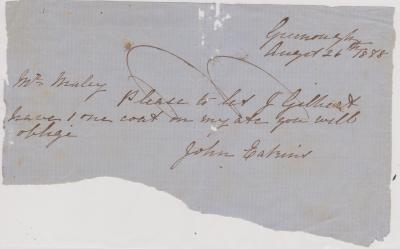 Greenough
Augst 26th 1888
Mr Maley Please to let J Gilbert
have 1 one coat on my ate you will
oblige
John Eakins